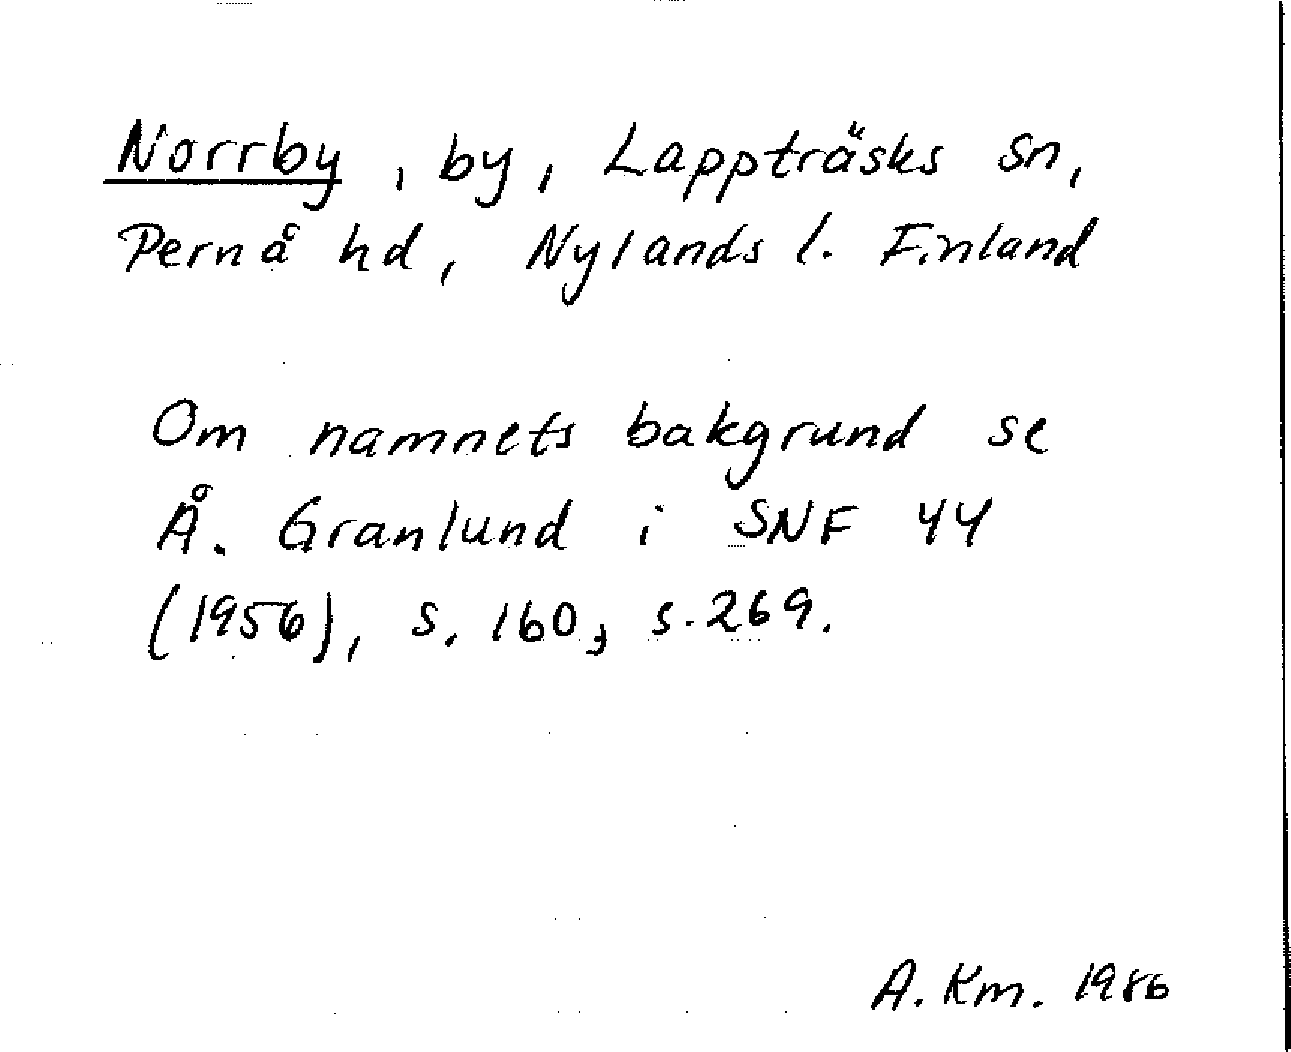 Norrby, by, Lappträsks sn,
Pernå hd, Nylands l. Finland
Om namnets bakgrund se
Å. Granlund i SNF 44
(1956), s. 160, s. 269.
A. Km. 1986